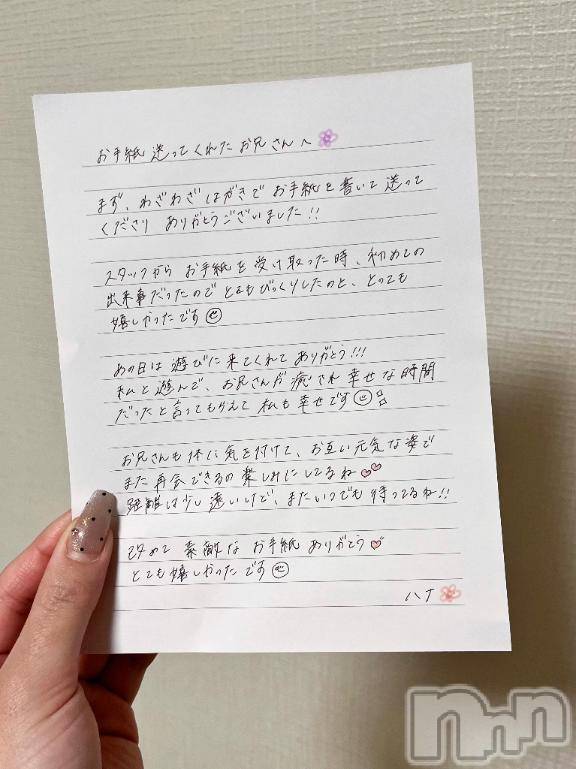 お手紙 送ってくれた お兄さんへ
まず、わざわざ はがきで お手紙を 書いて 送って
くださり ありがとうございました!!
スタッフから お手紙を 受け取った時、初めての
出来事だったので とてもびっくりしたのと、とっても
嬉しかったです
あの日は 遊びに 来てくれて ありがとう!!!
私と 遊んで、お兄さんが 癒され 幸せな時間
だったと言ってもらえて 私も 幸せです
お兄さんも 体に 気を付けて、お互い元気な姿で
また 再会できるの 楽しみにしてるね
距離は少し 遠いけど、またいつでも 待ってるね!!
改めて 素敵な お手紙 ありがとう
とても嬉しかったです
ハナ
nnn